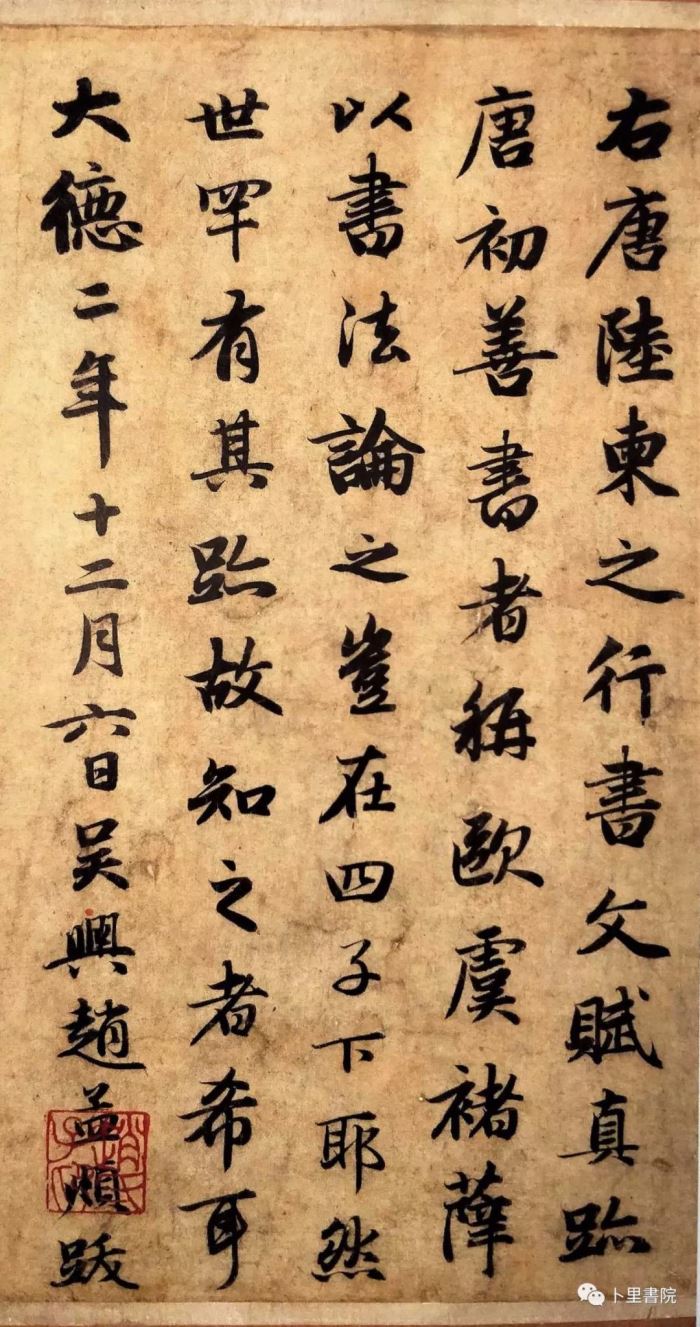 右唐陸柬之行書文賦真跡
唐初善書者稱歐虞褚薛
以書法論之豈在四子下耶然
世罕有其跡故知之者希耳
大德二年十二月六日吴興趙孟頫跋
趙氏子昂
卜里書院